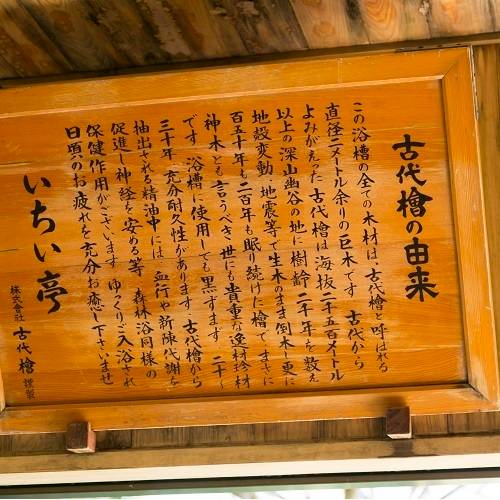 古代檜の由来
この浴槽の全ての木材は、古代檜と呼ばれる
直径二メートル余りの巨木です。古代から
よみがえった古代檜は海抜二千五百メートル
以上の深山幽谷の地に樹齢二千年を数え
地殻変動、地震等で生木のまま倒木し更に
百五十年も二百年も眠り続けた檜で、まさに
神木とも言うべき、世にも貴重な逸材珍材
です。浴槽に使用しても黒ずまず、二十〜
三十年充分耐久性があります。古代檜から
抽出される精油中には、血行や新陳代謝を
促進し神経を安める等、森林浴同様の
保健作用がございます。ゆっくりご入浴され
日頃のお疲れを充分お癒し下さいませ
いちい亭
株式会社 古代檜 謹製